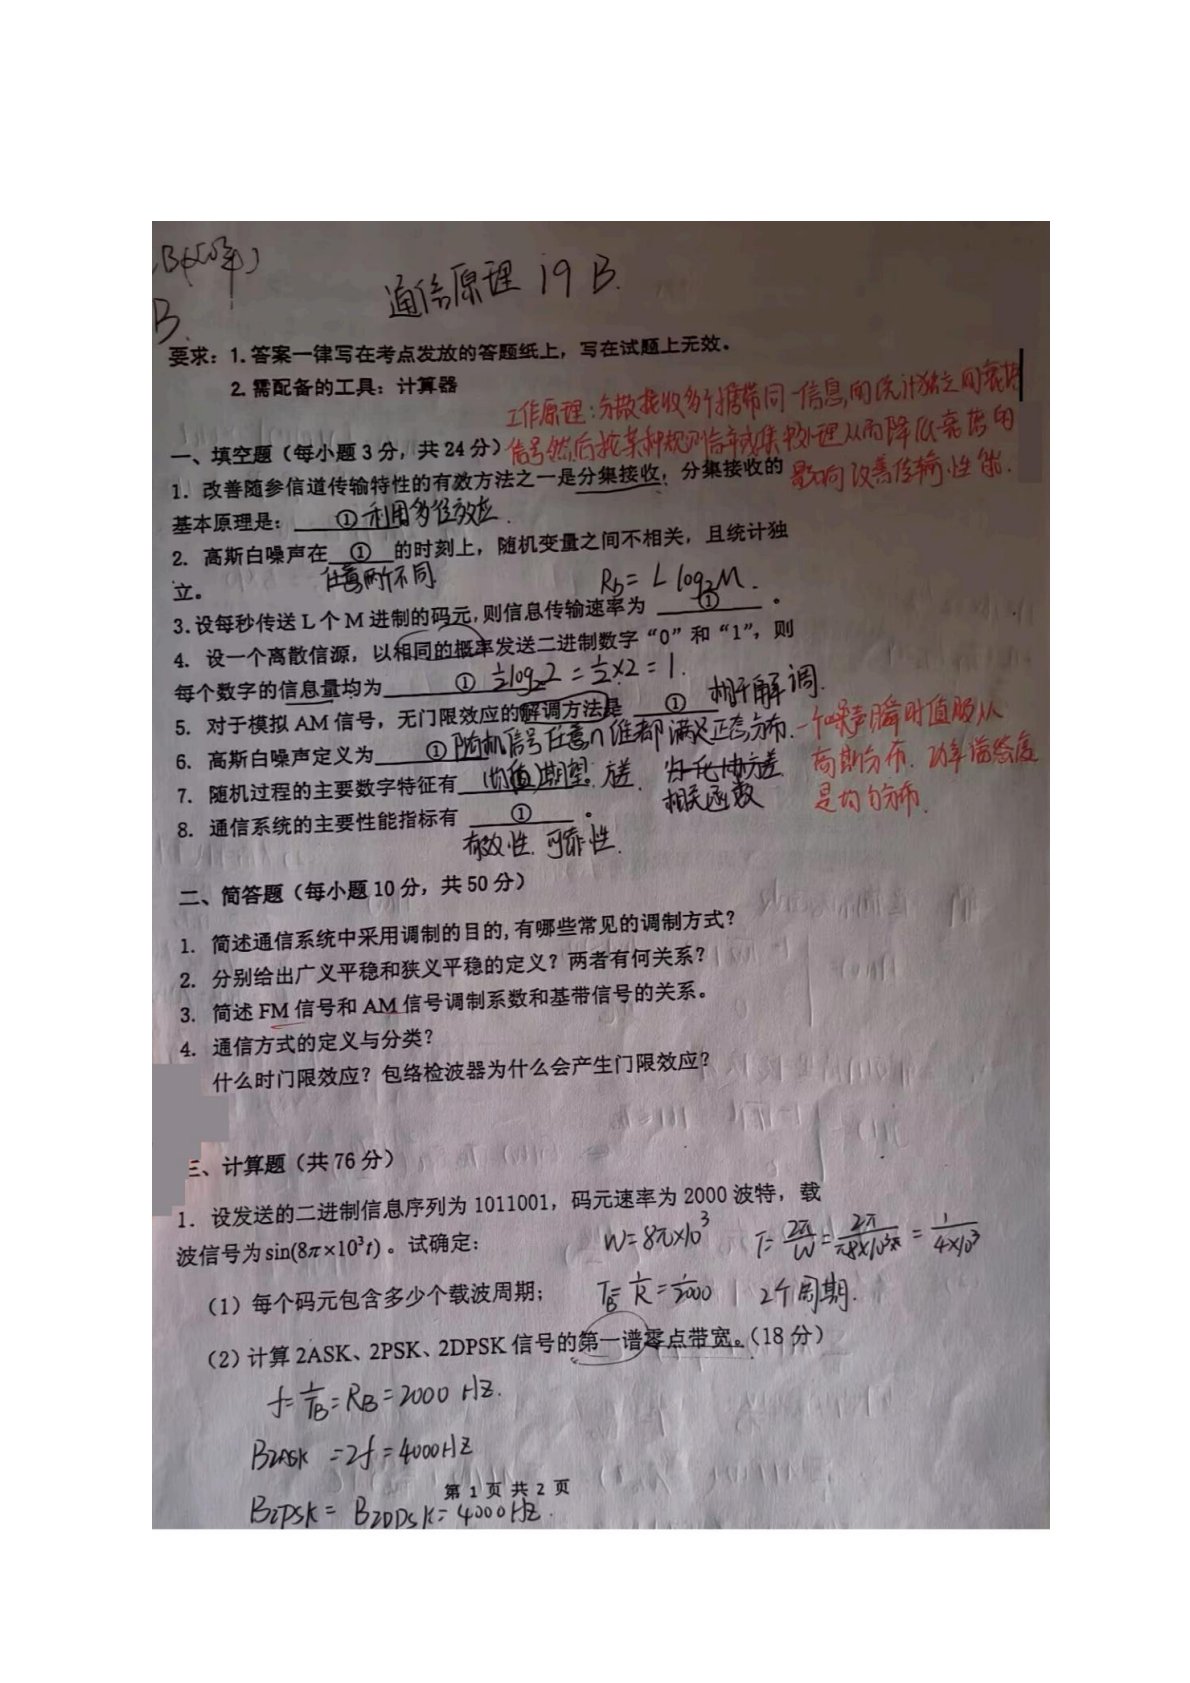 B(20年)
B.
通信原理 19 B.
要求：1.答案一律写在考点发放的答题纸上，写在试题上无效。
2.需配备的工具：计算器
工作原理：分散接收多个携带同一信息的统计独立的衰落
一、填空题（每小题3分，共24分）
信号然后按某种规则合并或集中处理从而降低衰落的
影响改善传输性能.
1. 改善随参信道传输特性的有效方法之一是分集接收；分集接收的
基本原理是：①利用多径效应.
2. 高斯白噪声在 ① 的时刻上，随机变量之间不相关，且统计独
立。
任意两个不同
Rb= L log₂M.
3.设每秒传送L个M进制的码元,则信息传输速率为 ① 。
4. 设一个离散信源，以相同的概率发送二进制数字“0”和“1”，则
每个数字的信息量均为 ① ½log₂2 = ½×2 = 1.
5. 对于模拟AM信号，无门限效应的解调方法是 ① 相干解调.
6. 高斯白噪声定义为 ① 随机信号任意n维都满足正态分布.
一个噪声瞬时值服从
高斯分布. 功率谱密度
是均匀分布.
7. 随机过程的主要数字特征有 (均值)期望. 方差. 归一化协方差
相关函数
8. 通信系统的主要性能指标有 ① 。
有效性. 可靠性.
二、简答题（每小题10分，共50分）
1. 简述通信系统中采用调制的目的,有哪些常见的调制方式？
2. 分别给出广义平稳和狭义平稳的定义？两者有何关系？
3. 简述FM信号和AM信号调制系数和基带信号的关系。
4. 通信方式的定义与分类？
什么时门限效应？包络检波器为什么会产生门限效应？
三、计算题（共76分）
1. 设发送的二进制信息序列为1011001，码元速率为2000波特，载
波信号为sin(8π×10³t)。试确定：
W=8π×10³ T= 2π/W = 2π/8×10³π = 1/4×10³
（1）每个码元包含多少个载波周期；
TB= 1/R = 1/2000 2个周期.
（2）计算2ASK、2PSK、2DPSK信号的第一谱零点带宽。（18分）
f= 1/TB = RB = 2000 HZ.
B2ASK =2f=4000HZ
第 1 页 共 2 页
B2PSK = B2DPSK= 4000HZ.